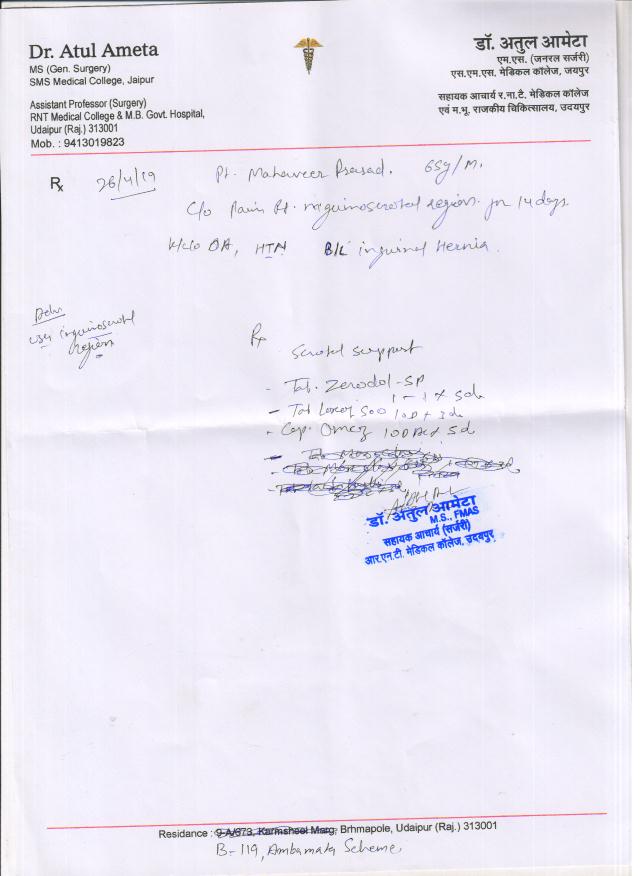 Dr. Atul Ameta
MS (Gen. Surgery)
SMS Medical College, Jaipur
Assistant Professor (Surgery)
RNT Medical College & M.B. Govt. Hospital,
Udaipur (Raj.) 313001
Mob. : 9413019823
डॉ. अतुल आमेटा
एम.एस. (जनरल सर्जरी)
एस.एम.एस. मेडिकल कॉलेज, जयपुर
सहायक आचार्य र.ना.टे. मेडिकल कॉलेज
एवं म.भू. राजकीय चिकित्सालय, उदयपुर
Rx 26/4/19 Pt. Mahaveer Prasad. 65y/M.
C/o Pain Rt. inguinoscrotal region for 14 days.
K/c/o OA, HTN B/L inguinal Hernia.
Adv
USG inguinoscrotal
region
Rx
Scrotal support
- Tab. Zerodol-SP
1-1 x 5d
- Tab 500 1OD x 3d
- Cap. Omez 1OD x 5d
डॉ. अतुल आमेटा
M.S., FMAS
सहायक आचार्य (सर्जरी)
आर.एन.टी. मेडिकल कॉलेज, उदयपुर
Residance : 9-A/673, Karmsheel Marg, Brhmapole, Udaipur (Raj.) 313001
B-119, Ambamata Scheme,